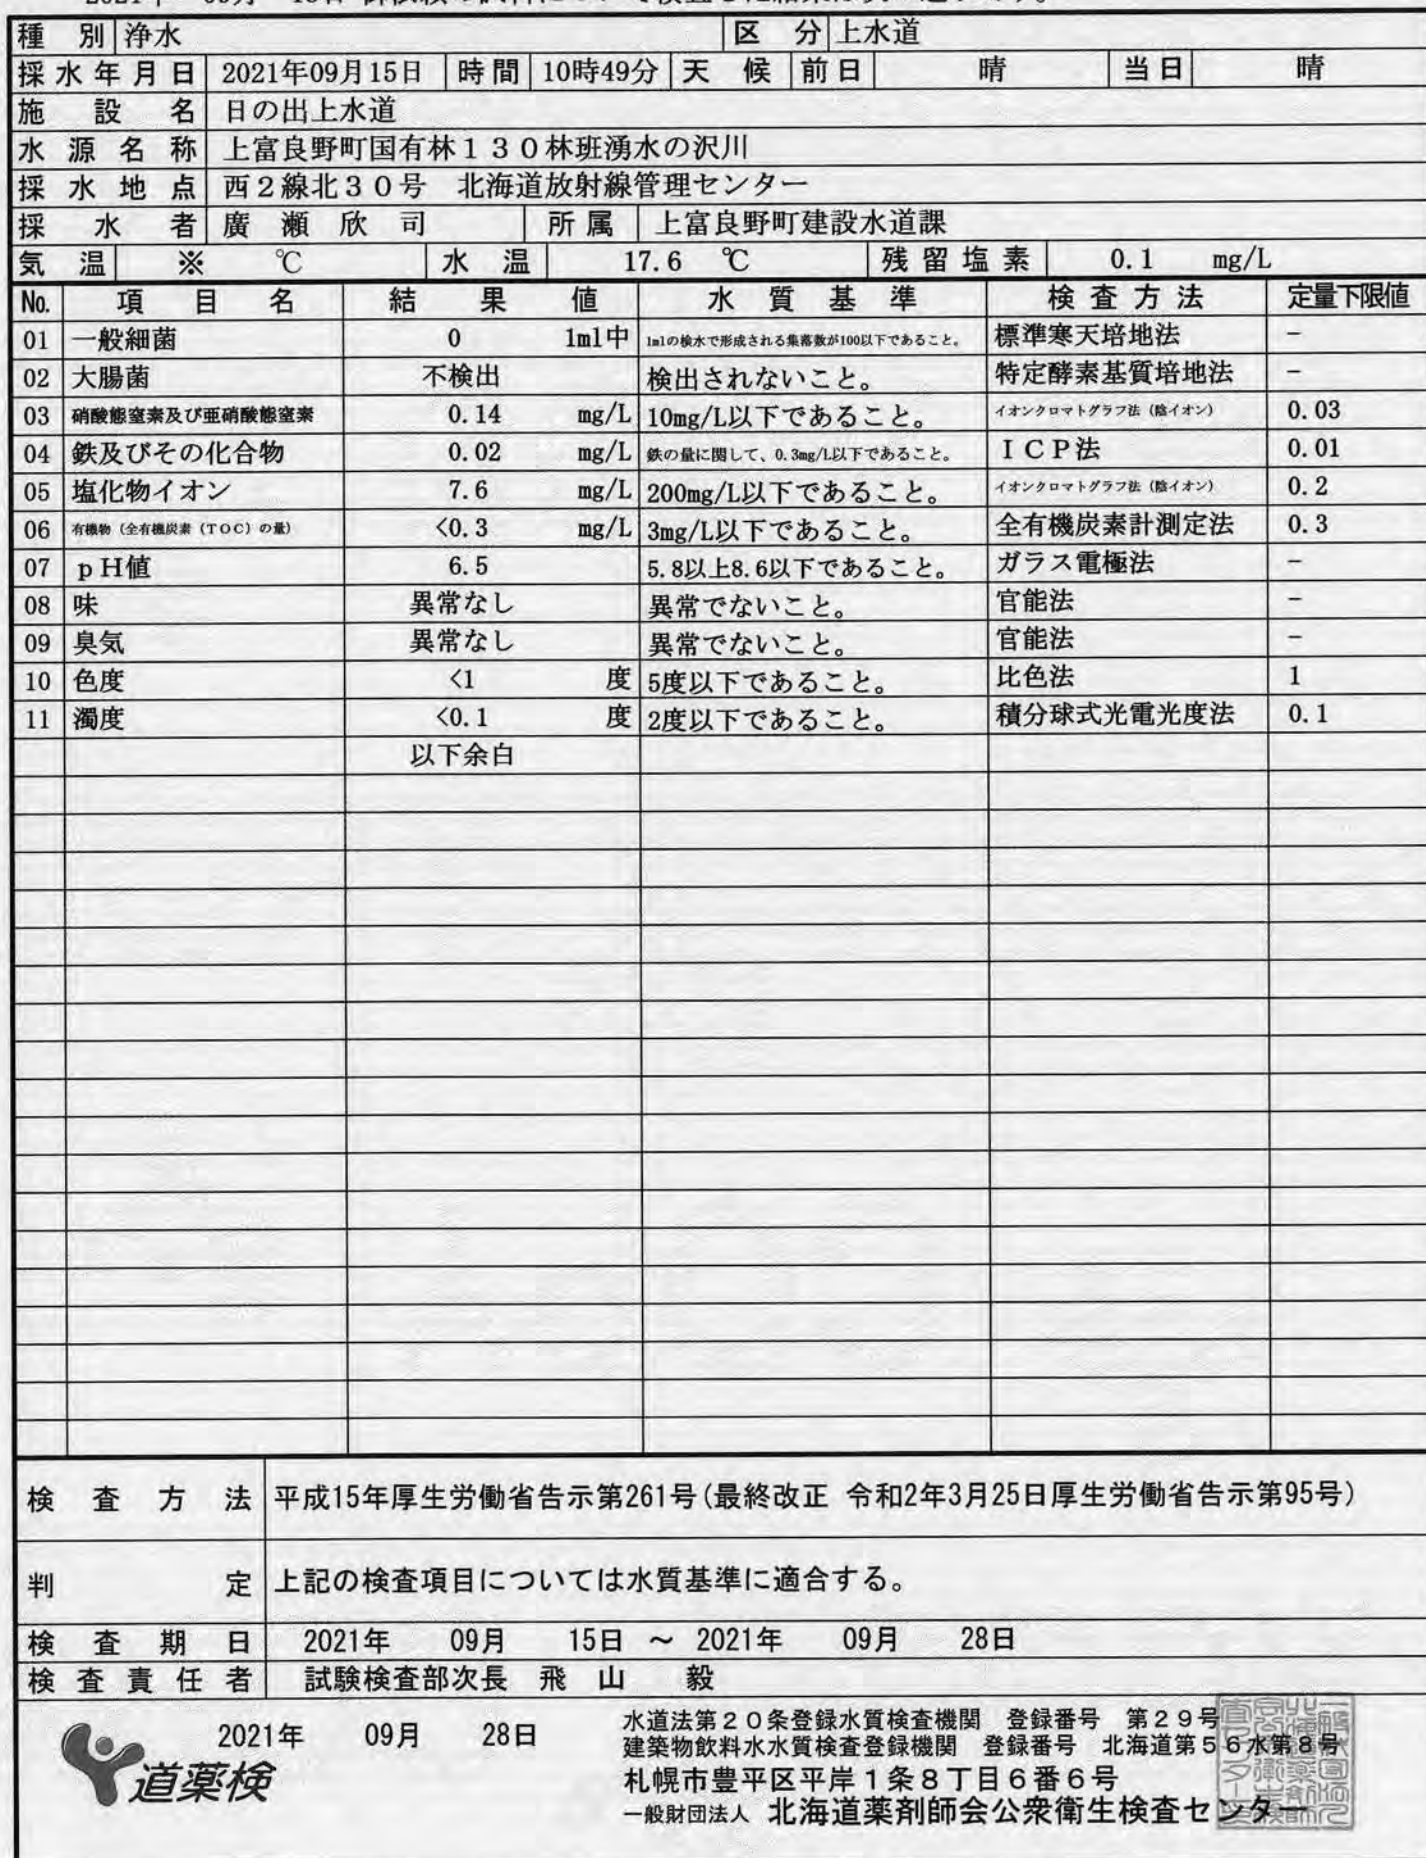 種 別 浄水 区 分 上水道
採水年月日 2021年09月15日 時間 10時49分 天 候 前日 晴 当日 晴
施 設 名 日の出上水道
水 源 名 称 上富良野町国有林130林班湧水の沢川
採 水 地 点 西2線北30号 北海道放射線管理センター
採 水 者 廣 瀬 欣 司 所属 上富良野町建設水道課
気 温 ※ ℃ 水 温 17.6 ℃ 残留塩素 0.1 mg/L
No. 項 目 名 結 果 値 水 質 基 準 検 査 方 法 定量下限値
01 一般細菌 0 1ml中 1mlの検水で形成される集落数が100以下であること。 標準寒天培地法 -
02 大腸菌 不検出 検出されないこと。 特定酵素基質培地法 -
03 硝酸態窒素及び亜硝酸態窒素 0.14 mg/L 10mg/L以下であること。 イオンクロマトグラフ法(陰イオン) 0.03
04 鉄及びその化合物 0.02 mg/L 鉄の量に関して、0.3mg/L以下であること。 ICP法 0.01
05 塩化物イオン 7.6 mg/L 200mg/L以下であること。 イオンクロマトグラフ法(陰イオン) 0.2
06 有機物(全有機炭素(TOC)の量) <0.3 mg/L 3mg/L以下であること。 全有機炭素計測定法 0.3
07 pH値 6.5 5.8以上8.6以下であること。 ガラス電極法 -
08 味 異常なし 異常でないこと。 官能法 -
09 臭気 異常なし 異常でないこと。 官能法 -
10 色度 <1 度 5度以下であること。 比色法 1
11 濁度 <0.1 度 2度以下であること。 積分球式光電光度法 0.1
以下余白
検 査 方 法 平成15年厚生労働省告示第261号(最終改正 令和2年3月25日厚生労働省告示第95号)
判 定 上記の検査項目については水質基準に適合する。
検 査 期 日 2021年 09月 15日 ~ 2021年 09月 28日
検 査 責 任 者 試験検査部次長 飛 山 毅
2021年 09月 28日
道薬検
水道法第20条登録水質検査機関 登録番号 第29号
建築物飲料水水質検査登録機関 登録番号 北海道第56水第8号
札幌市豊平区平岸1条8丁目6番6号
一般財団法人 北海道薬剤師会公衆衛生検査センター